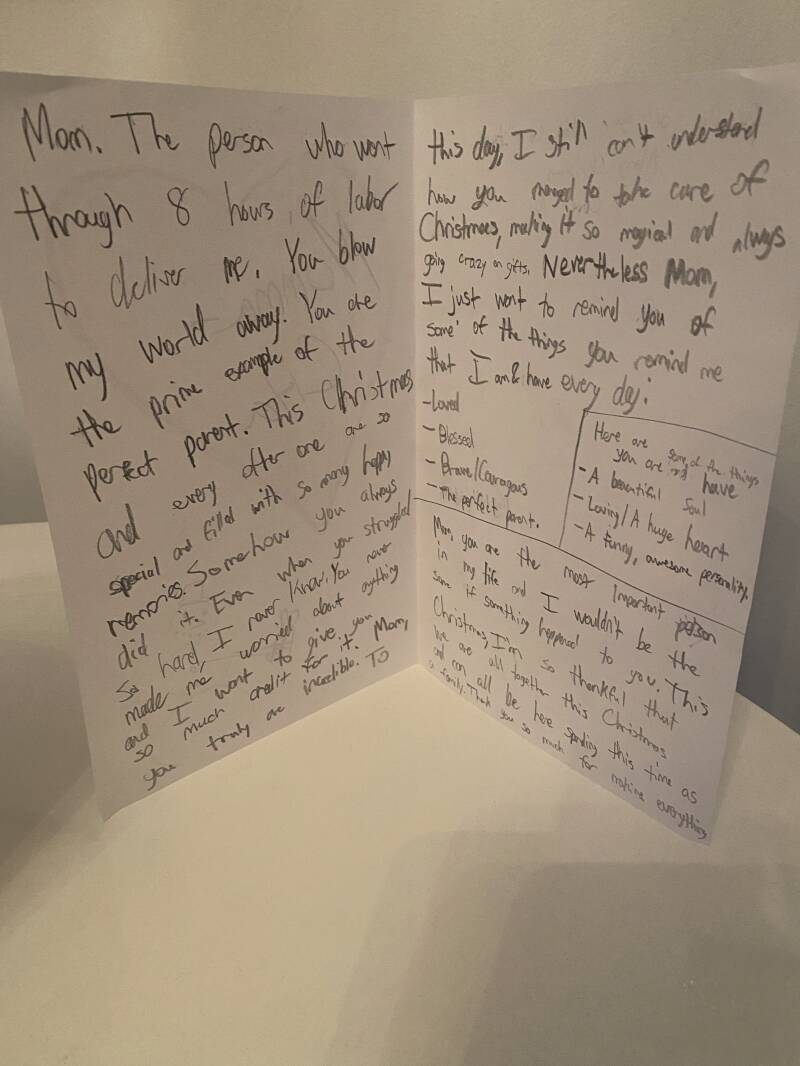 Mom. The person who went
through 8 hours of labor
to deliver me. You blow
my world away. You are
the prime example of the
perfect parent. This Christmas
and every other one are so
special and filled with so many happy
memories. Somehow you always
did it. Even when you struggled
so hard, I never knew. You never
made me worried about anything
and I want to give you
so much credit for it. Mom,
you truly are incredible. To
this day, I still can't understand
how you manged to take care of
Christmas, making it so magical and always
going crazy on gifts. Nevertheless Mom,
I just want to remind you of
some of the things you remind me
that I am & have every day:
-Loved
- Blessed
- Brave/Couragous
- The perfect parent.
Here are some of the things
you are and have
- A beautiful soul
- Loving/A huge heart
- A funny, awesome personality.
Mom, you are the most important person
in my life and I wouldn't be the
same if something happened to you. This
Christmas, I'm so thankful that
we are all together this Christmas
and can all be here spending this time as
a family. Thank you so much for making everything